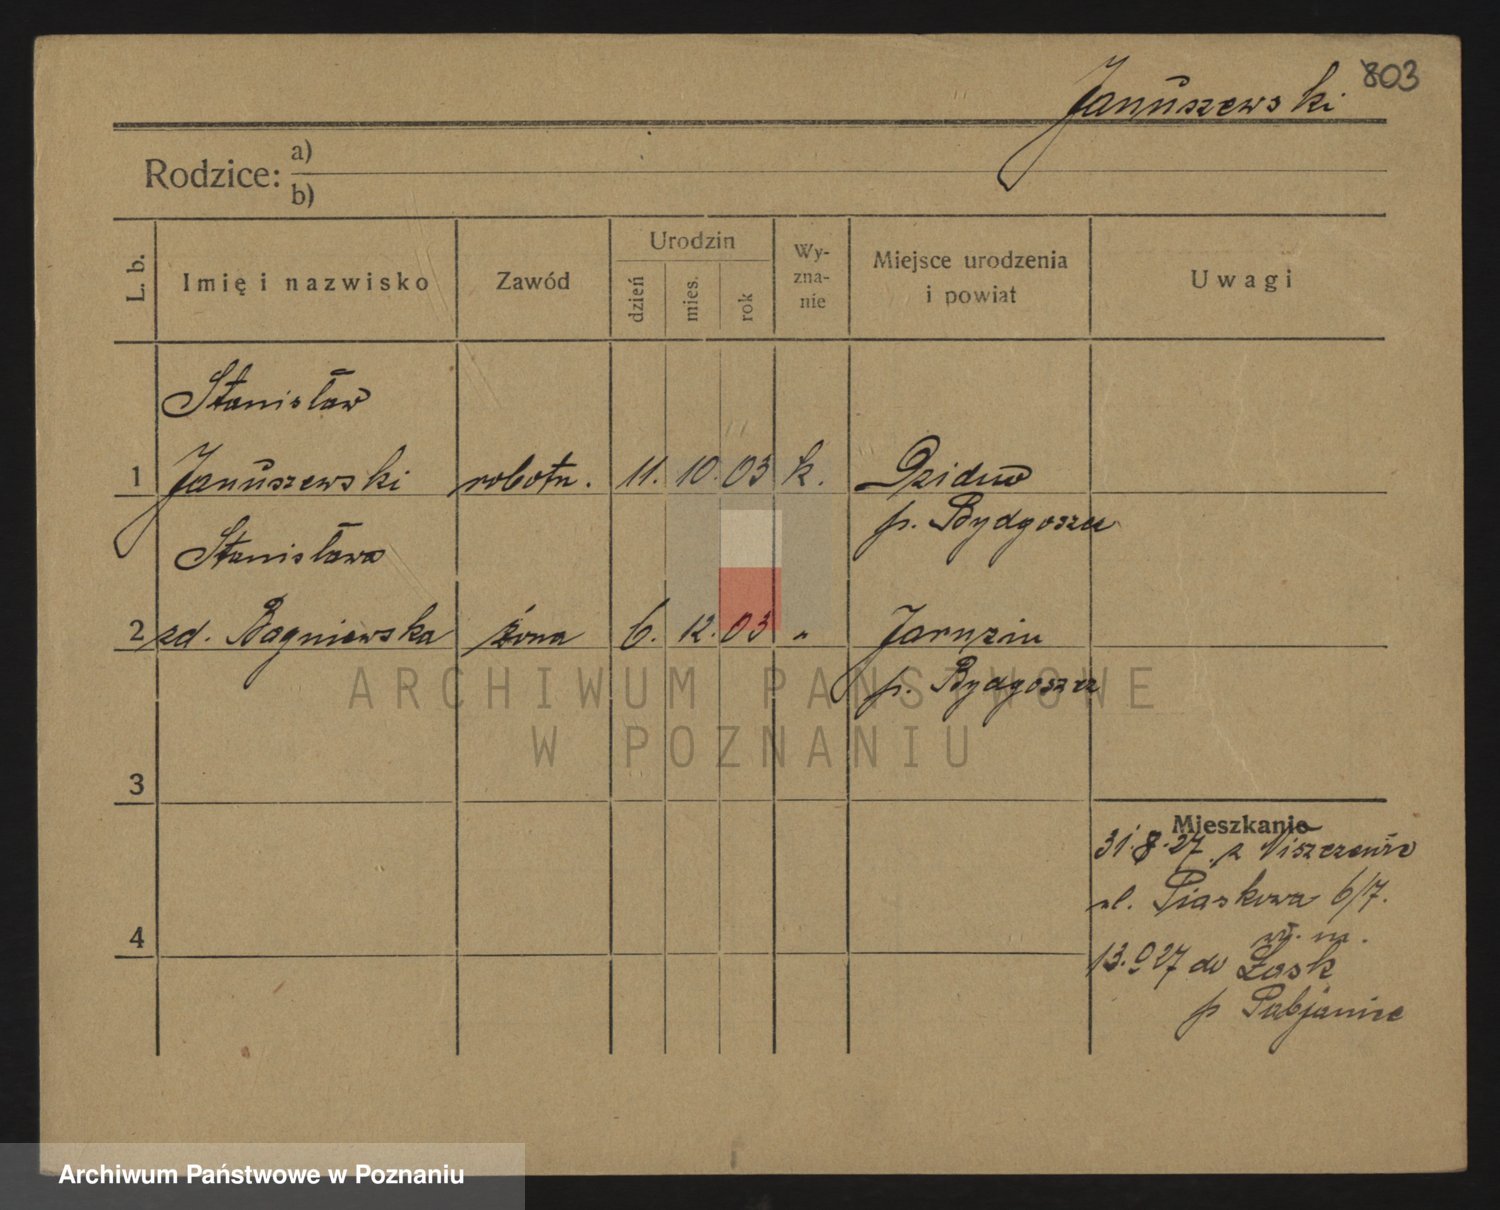 803
Januszewski
Rodzice: a)
b)
L. b.
Imię i nazwisko
Zawód
Urodzin
dzień
mies.
rok
Wy-
zna-
nie
Miejsce urodzenia
i powiat
Uwagi
Stanisław
1 Januszewski robotn. 11. 10. 03 k.
p. Bydgoszcz
Stanisława
2 zd. Bagniewska żona 6. 12. 03 "
Jaruzin
p. Bydgoszcz
ARCHIWUM PAŃSTWOWE
W POZNANIU
3
Mieszkanie
31.8.27 z
ul. Piaskowa 6/7.
4
13.9 27 do Łask
p Pabjanice
Archiwum Państwowe w Poznaniu